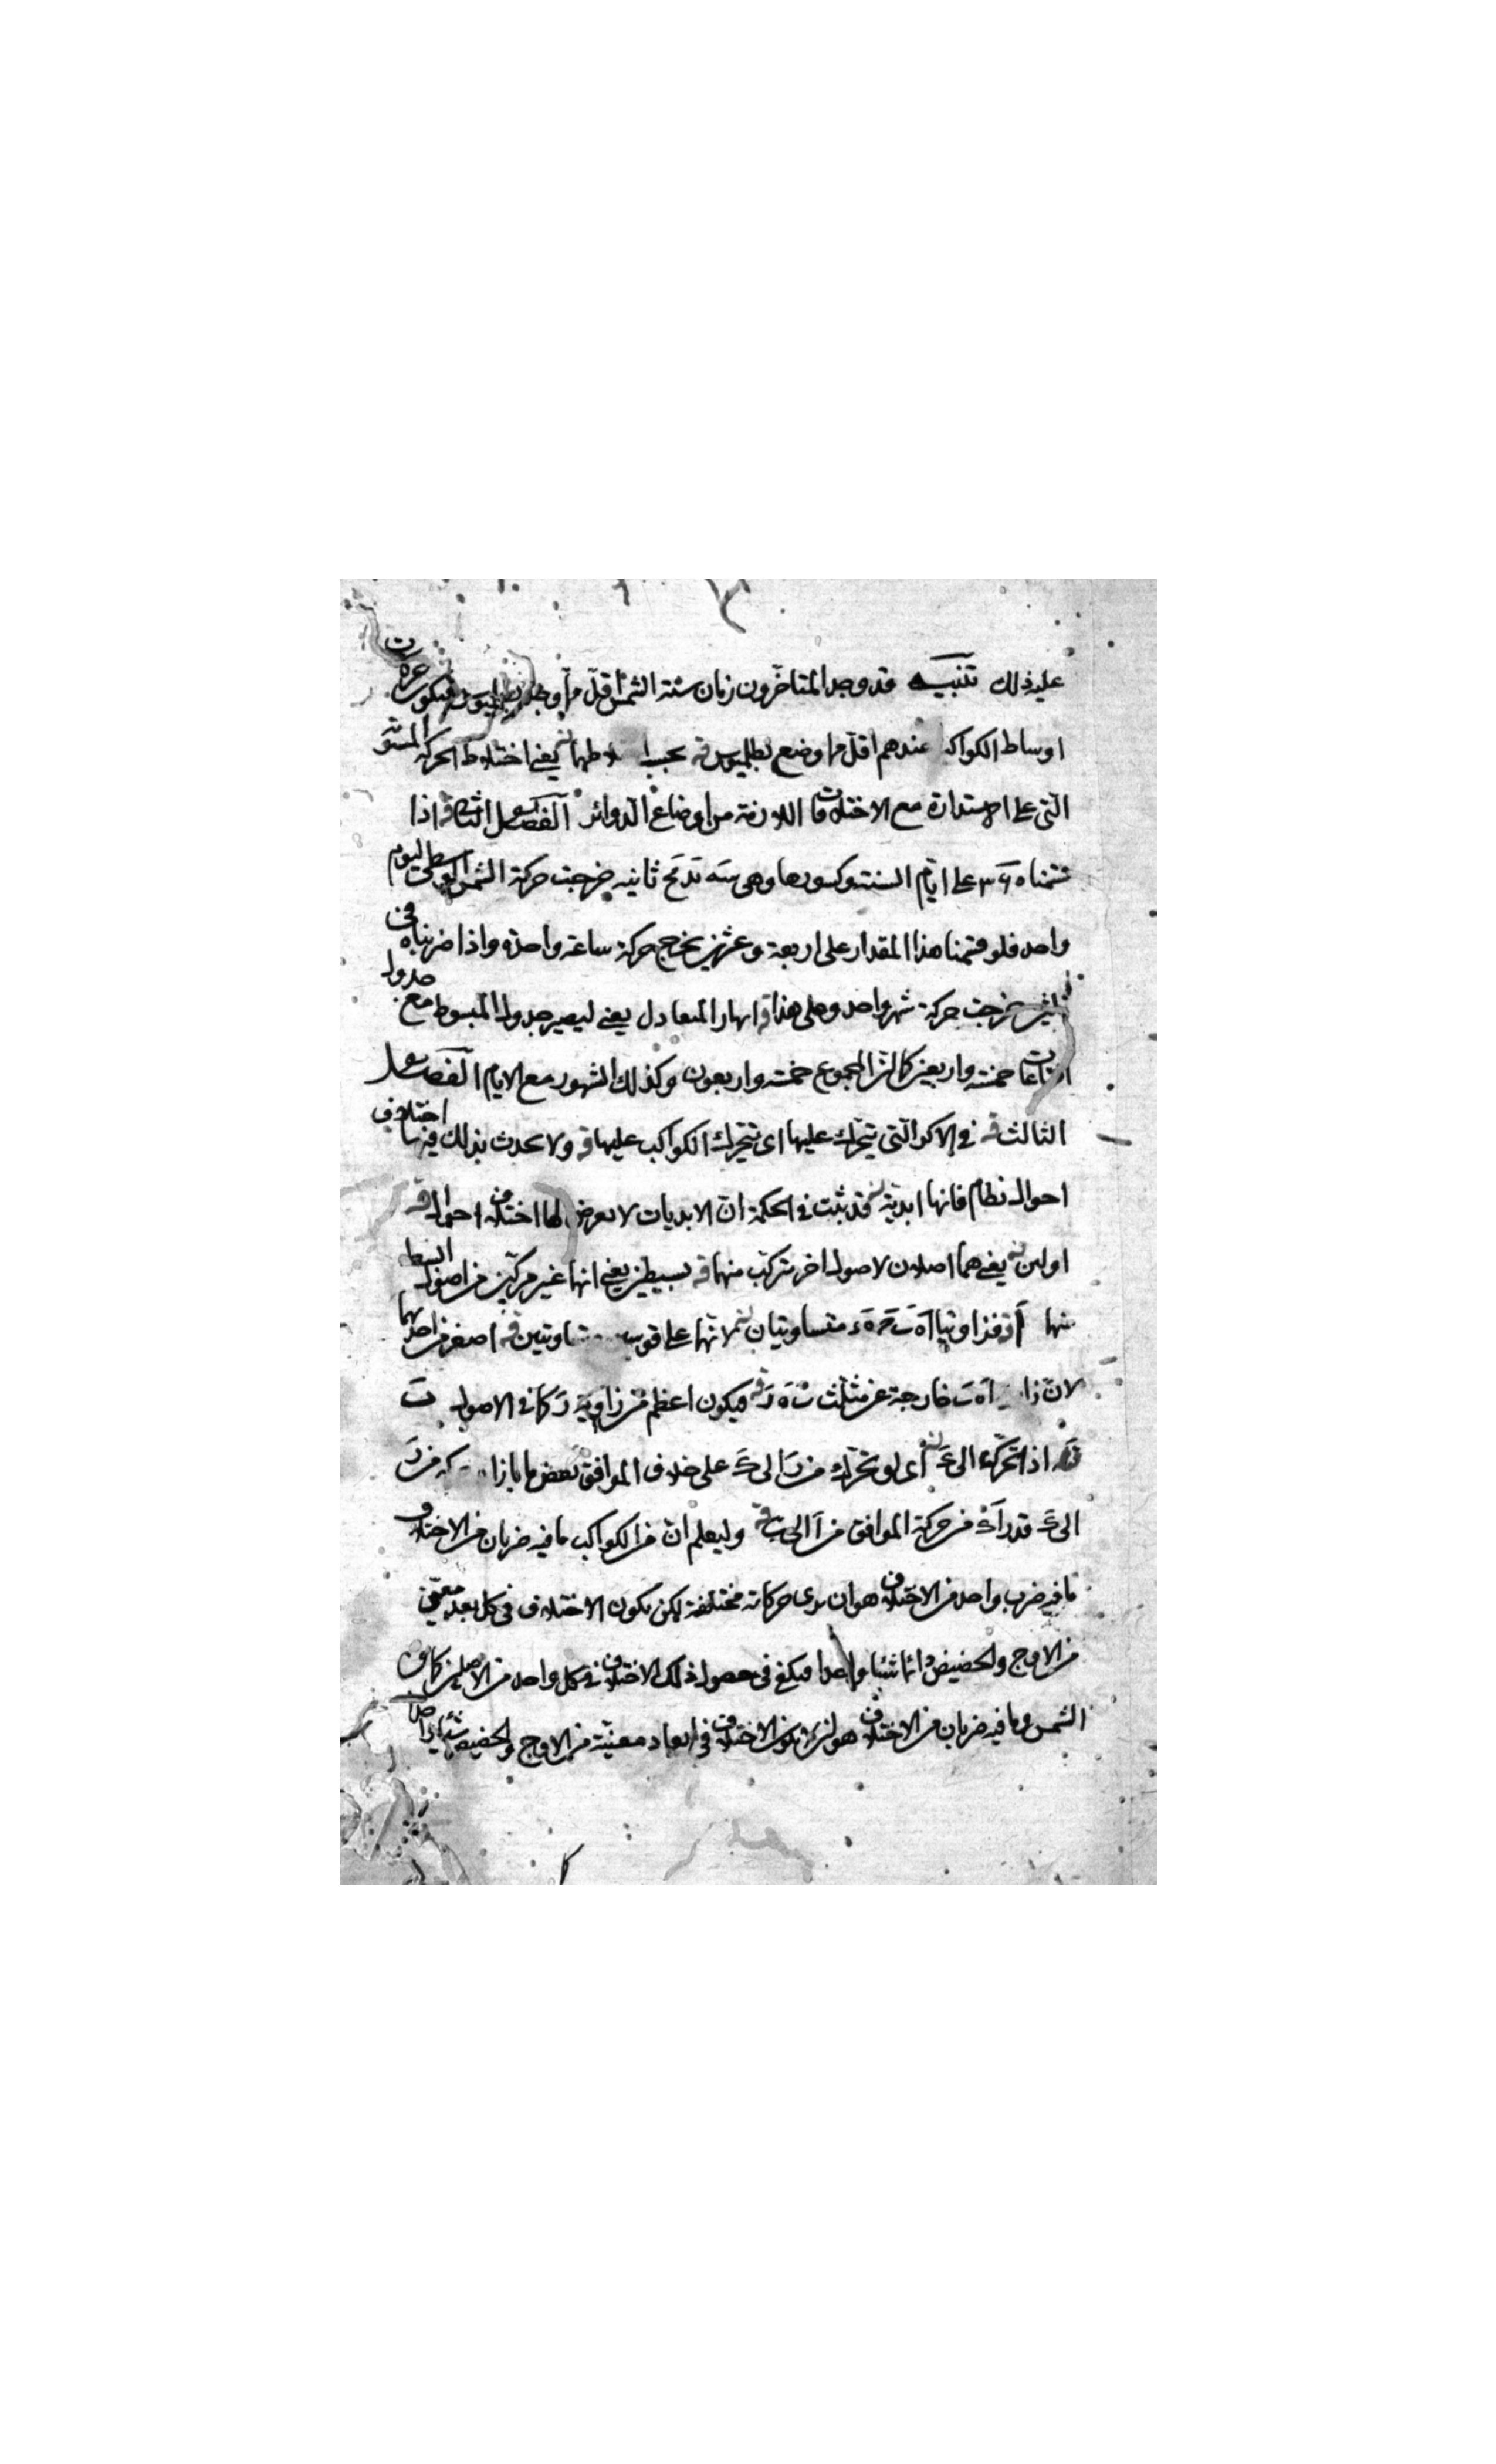 عليه ذلك تنبيه قد وجد المتاخرون زمان سنة الشمس اقل مما وجد بطليموس فيكون
اوساط الكواكب عندهم اقل مما وضع بطليموس قه بحسب يعني اختلاط الحركة المستوية
التي على الاستدارة مع الاختلافات اللازمة من اوضاع الدوائر الفصل الثاني قه اذا
قسمنا ٣٦٠ على ايام السنة وكسورها وهي سه يد مح ثانيه خرجت حركة الشمس الوسطى ليوم
واحد فلو قسمنا هذا المقدار على اربعة وعشرين يخرج حركة ساعة واحدة واذا ضربناه في
ثلثين خرجت حركة شهر واحد وعلى هذا قه المعادل يعني ليصير جدول المبسوط مع جدول
الساعات خمسة واربعين كان المجموع خمسة واربعون وكذلك الشهور مع الايام الفصل
الثالث قه في الاكر التي تتحرك عليها اى تتحرك الكواكب عليها قه ولا يحدث بذلك فيها اختلاف
احوال نظام فانها ابدية قد ثبت في الحكمة ان الابديات لا يعرض لها اختلاف احوال قه
اولين يعني هما اصلان لاصول اخر يتركب منهما قه بسيطين يعني انها غير مركبين من اصول ابسط
منها فزاويتا اَهَ بَ حَ هَ دَ متساويتان لانهما على قوسين متساويتين قه اصغر من احديهما
لان اَهَ بَ خارجة عن مثلث بَ هَ دَ قه فيكون اعظم من زاوية دَ كما في الاصول
اذا تحرك الى اى لو تحرك من دَ الى حَ على خلاف الموافق بعض ما بازاء من دَ
الى حَ قدر من حركة الموافق من اَ الى بَ قه وليعلم ان من الكواكب ما فيه ضربان من الاختلاف
ما فيه ضرب واحد من الاختلاف هو ان يرى حركاته مختلفة لكن يكون الاختلاف في كل بعد معين
من الاوج والحضيض دائما شيئا واحدا فيكفي في حصول ذلك الاختلاف في كل واحد من الاصلين كما في
الشمس وما فيه ضربان من الاختلاف هو الذى يكون الاختلاف في ابعاد معينة من الاوج والحضيض شيئا واحدا